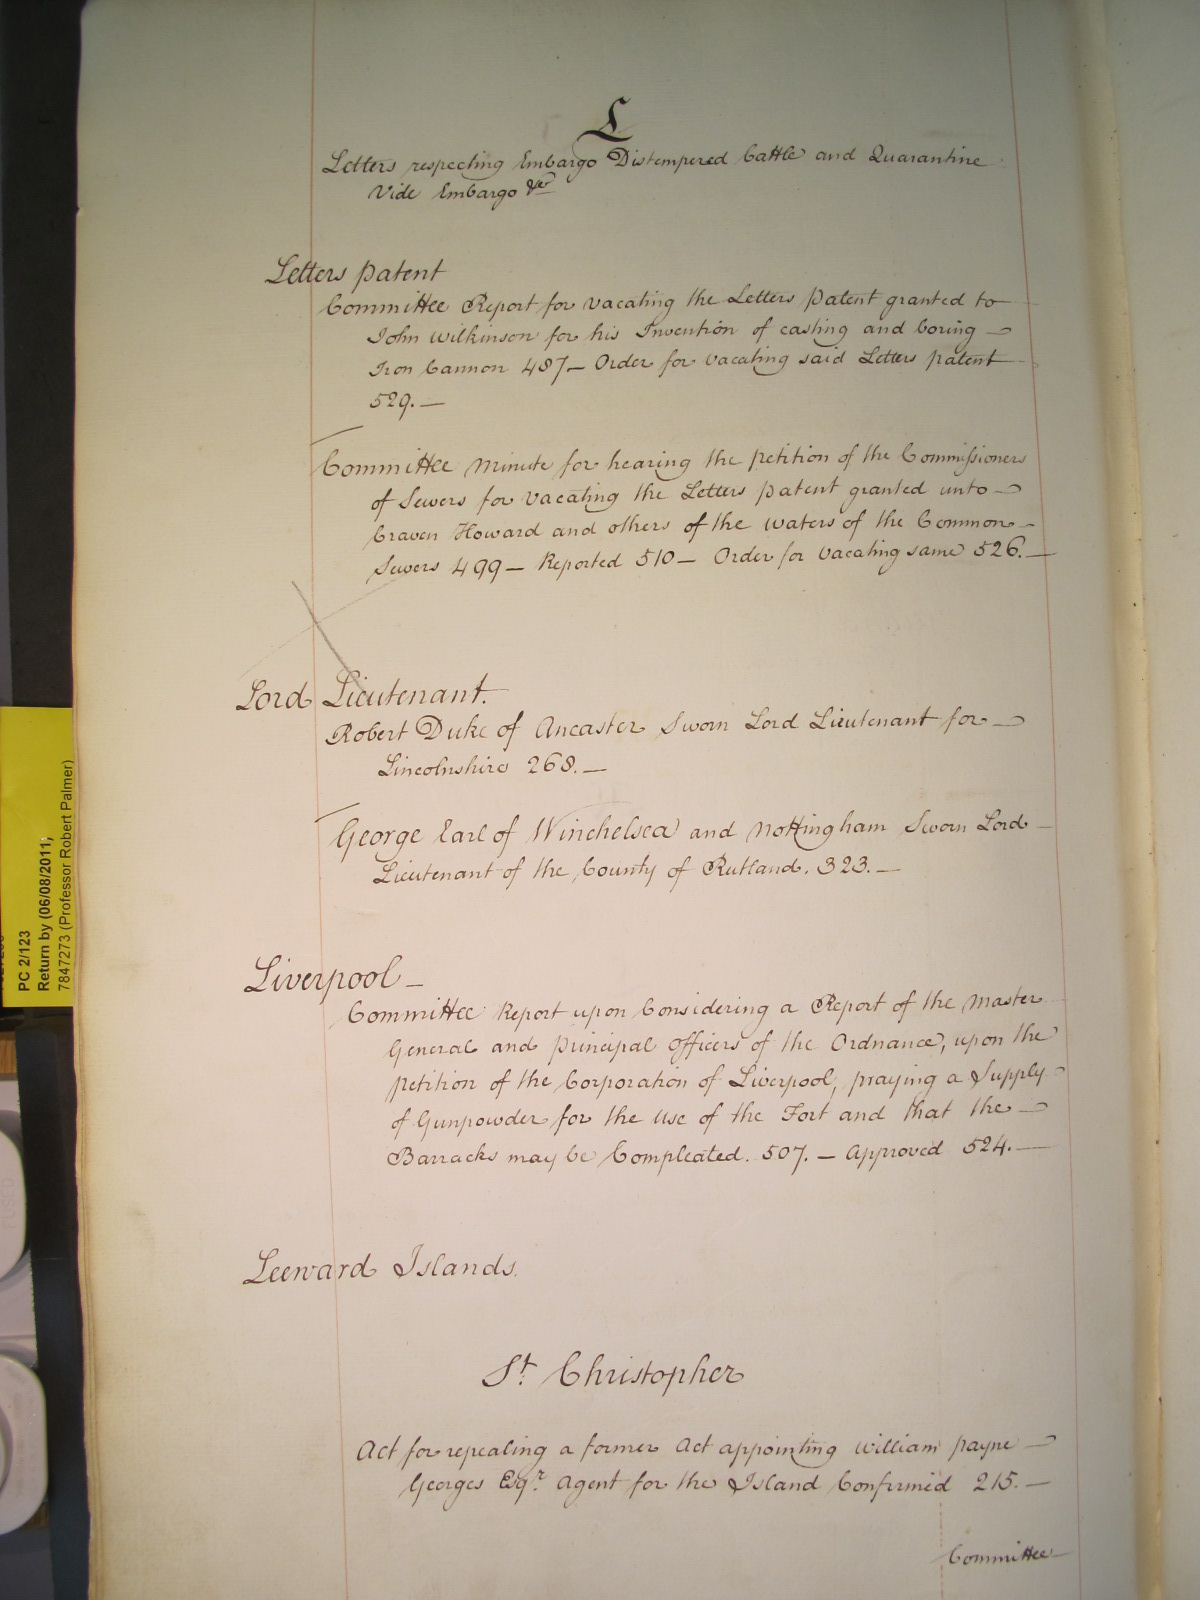 L
Letters respecting Embargo Distempered Cattle and Quarantine
Vide Embargo &ca
Letters Patent
Committee Report for vacating the Letters Patent granted to
John Wilkinson for his Invention of casting and boring
Iron Cannon 487 — Order for vacating said Letters patent
529. —
Committee Minute for hearing the petition of the Commissioners
of Sewers for vacating the Letters Patent granted unto
Craven Howard and others of the waters of the Common
Sewers 499 — Reported 510 — Order for vacating same 526. —
Lord Lieutenant.
Robert Duke of Ancaster Sworn Lord Lieutenant for
Lincolnshire 268. —
George Earl of Winchelsea and Nottingham Sworn Lord
Lieutenant of the County of Rutland. 323. —
Liverpool —
Committee Report upon Considering a Report of the Master
General and Principal Officers of the Ordnance, upon the
petition of the Corporation of Liverpool, praying a Supply
of Gunpowder for the use of the Fort and that the
Barracks may be Compleated. 507. — Approved 524. —
Leeward Islands.
St. Christopher
Act for repealing a former Act appointing William Payne
Georges Esqr. Agent for the Island Confirmed 215. —
Committee
PC 2/123
Return by (06/08/2011,
7847273 (Professor Robert Palmer)